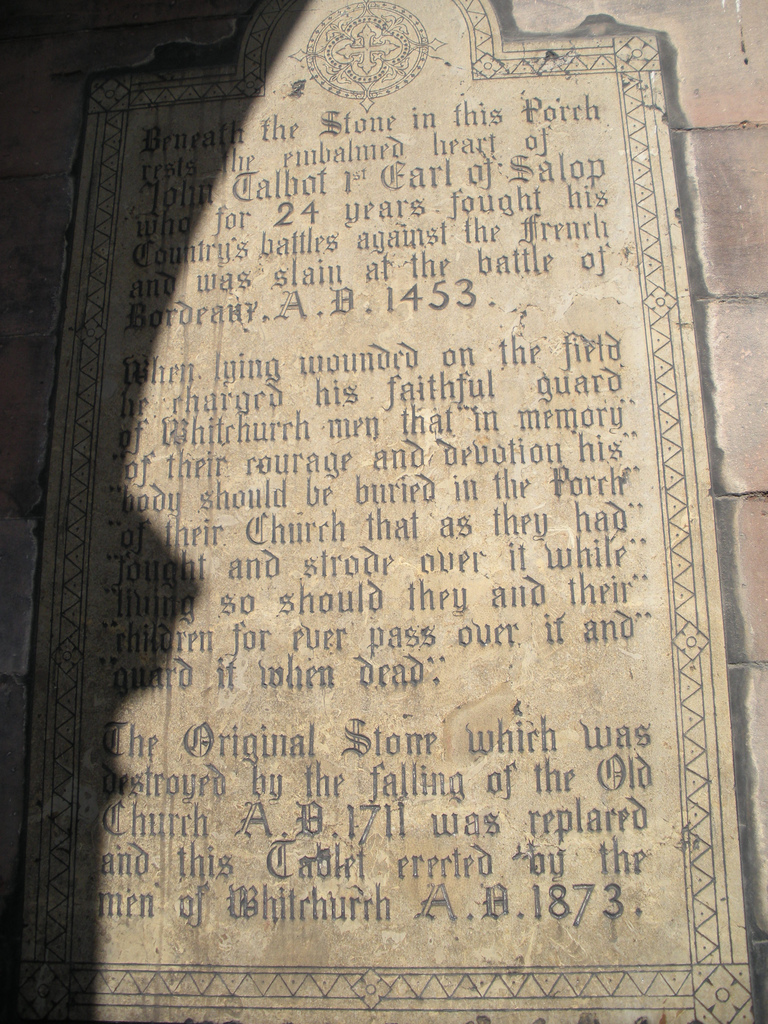 Beneath the Stone in this Porch
rests the embalmed heart of
John Talbot 1st Earl of Salop
who for 24 years fought his
Country's battles against the French
and was slain at the battle of
Bordeaux. A.D. 1453.
When lying wounded on the field
he charged his faithful guard
of Whitchurch men that "in memory"
"of their courage and devotion his"
"body should be buried in the Porch"
"of their Church that as they had"
"fought and strode over it while"
"living so should they and their"
"children for ever pass over it and"
"guard it when dead".
The Original Stone which was
destroyed by the falling of the Old
Church A.D. 1711 was replaced
and this Tablet erected by the
men of Whitchurch A.D. 1873.